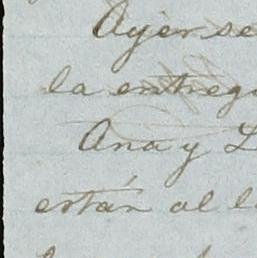 Ayer se
la entreg
Ana y L
están al l